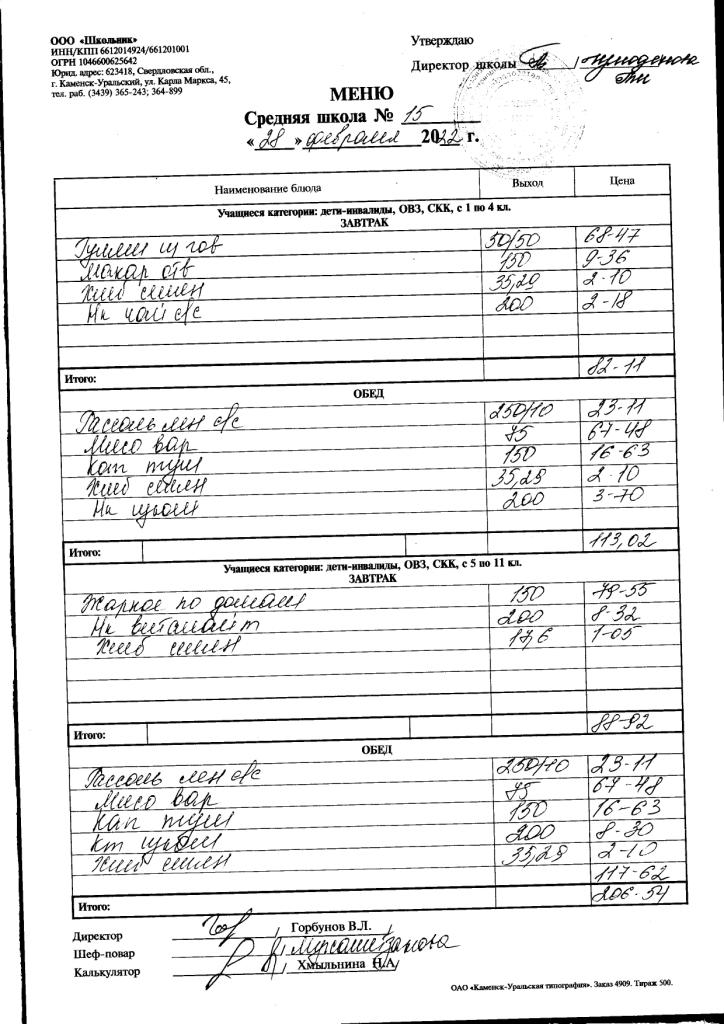 ООО «Школьник»
ИНН/КПП 6612014924/661201001
ОГРН 1046600625642
Юрид. адрес: 623418, Свердловская обл.,
г. Каменск-Уральский, ул. Карла Маркса, 45,
тел. раб. (3439) 365-243; 364-899
Утверждаю
Директор школы
МЕНЮ
Средняя школа № 15
«28» февраля 2022 г.
Наименование блюда Выход Цена
Учащиеся категории: дети-инвалиды, ОВЗ, СКК, с 1 по 4 кл.
ЗАВТРАК
Гуляш из гов 50/50 68-47
Макар отв 150 9-36
Хлеб 35,29 2-10
Нк чай с/с 200 2-18
82-11
Итого:
ОБЕД
Рассоль лен с/с 250/10 23-11
Мясо вар 75 67-48
Кап туш 150 16-63
Хлеб 35,29 2-10
Нк 200 3-70
113,02
Итого:
Учащиеся категории: дети-инвалиды, ОВЗ, СКК, с 5 по 11 кл.
ЗАВТРАК
Жаркое по домаш 150 79-55
Нк витамайт 200 8-32
Хлеб 17,6 1-05
88-92
Итого:
ОБЕД
Рассоль лен с/с 250/10 23-11
Мясо вар 75 67-48
Кап туш 150 16-63
Кт 200 8-30
Хлеб 35,29 2-10
117-62
206-54
Итого:
Директор Горбунов В.Л.
Шеф-повар
Калькулятор Хмыльнина Н.А.
ОАО «Каменск-Уральская типография». Заказ 4909. Тираж 500.